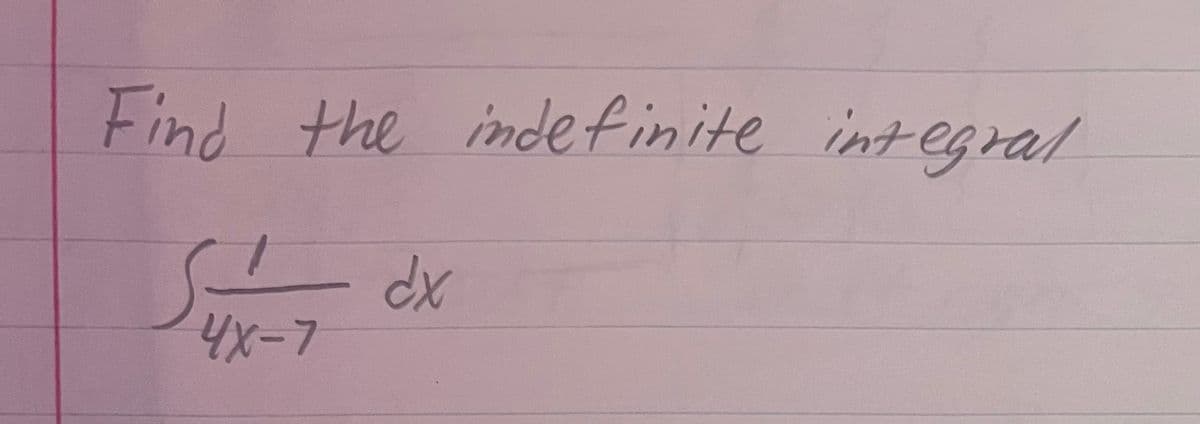 Find the indefinite integral
∫ 1/(4x-7) dx